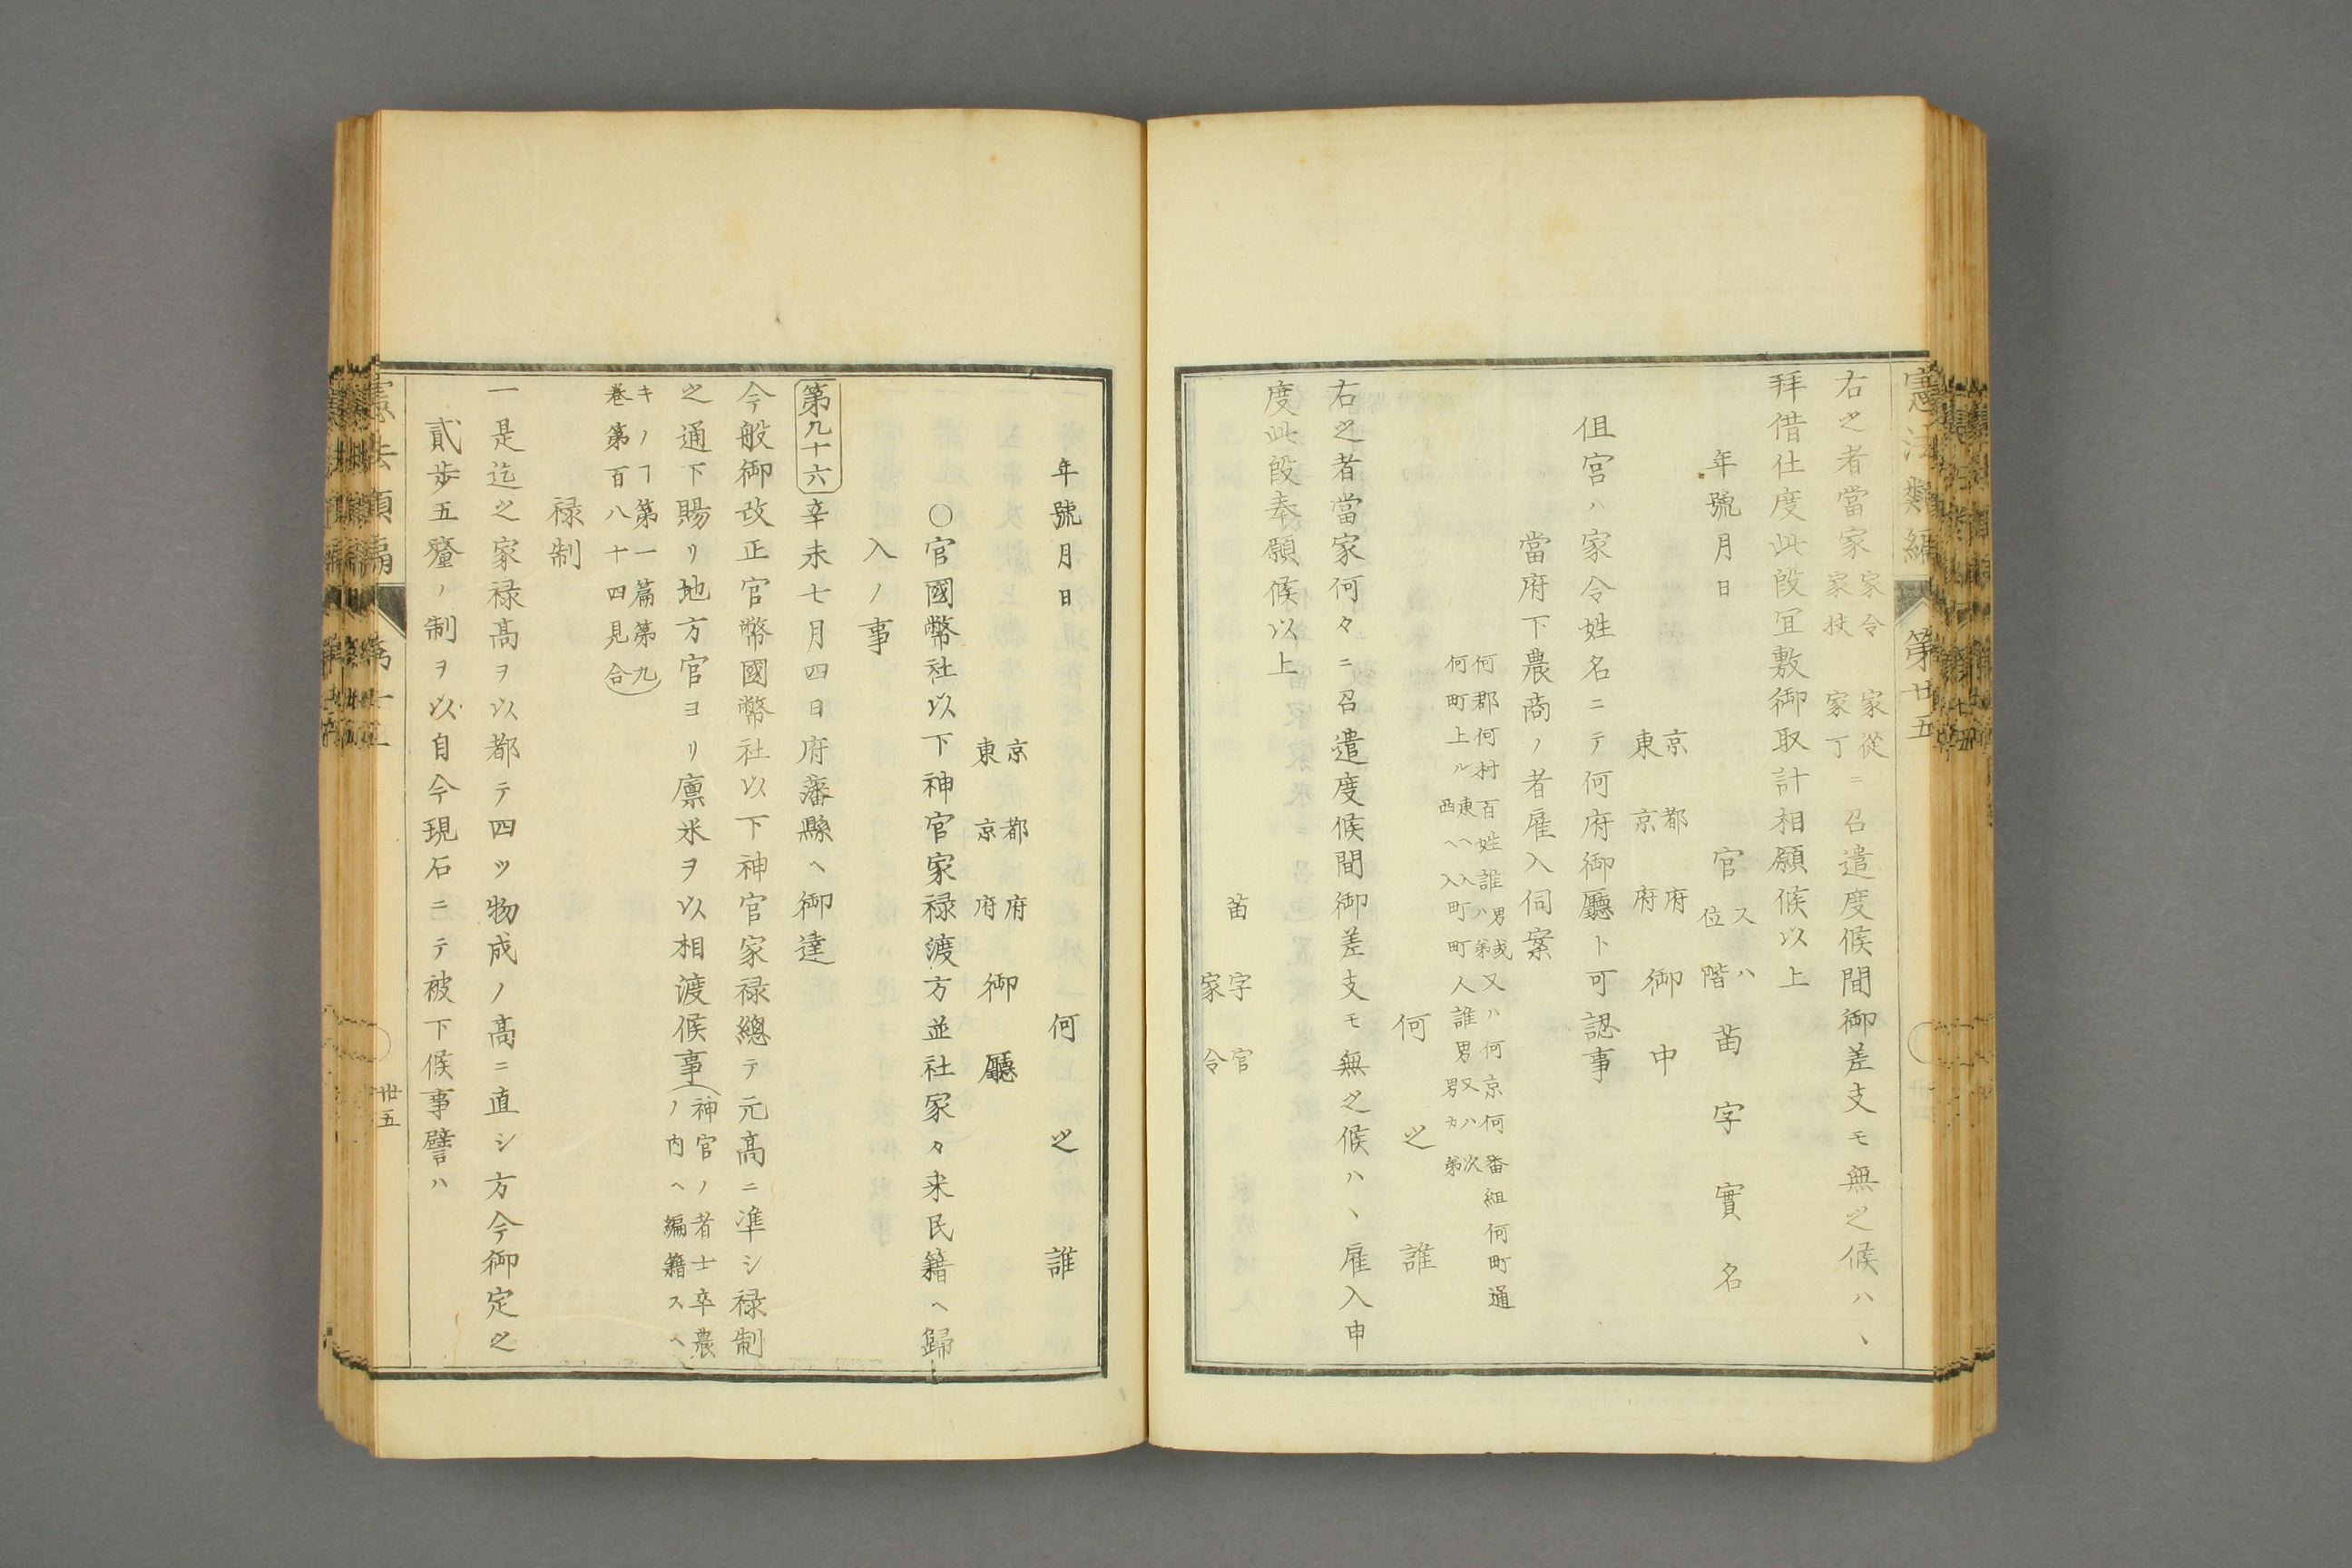 憲法類編 第廿五
右之者當家家令家扶家從家丁ニ召遣度候間御差支モ無之候ハヽ
拜借仕度此段宜敷御取計相願候以上
年號月日
官位階 苗字實名
又ハ
京都府
東京府
御中
但宮ハ家令姓名ニテ何府御廳ト可認事
當府下農商ノ者雇入伺案
何郡何村百姓誰男或ハ弟又ハ何京何番組何町通
何町上ル東ヘ入西ヘ入町町人誰男又ハ次男カ弟
何之誰
右之者當家何々ニ召遣度候間御差支モ無之候ハヽ雇入申
度此段奉願候以上
苗字官
家令
年號月日 何之誰
京都府
東京府
御廳
○官國幣社以下神官家禄渡方並社家々来民籍ヘ歸
入ノ事
第九十六 辛未七月四日府藩縣ヘ御達
今般御改正官幣國幣社以下神官家禄總テ元高ニ準シ禄制
之通下賜リ地方官ヨリ廪米ヲ以相渡候事(神官ノ者士卒農
ノ内ヘ編籍スヘ
キノヿ第一篇第九
巻第百八十四見合)
禄制
一是迄之家禄高ヲ以都テ四ツ物成ノ高ニ直シ方今御定之
貳歩五釐ノ制ヲ以自今現石ニテ被下候事譬ハ
憲法類編
卅五